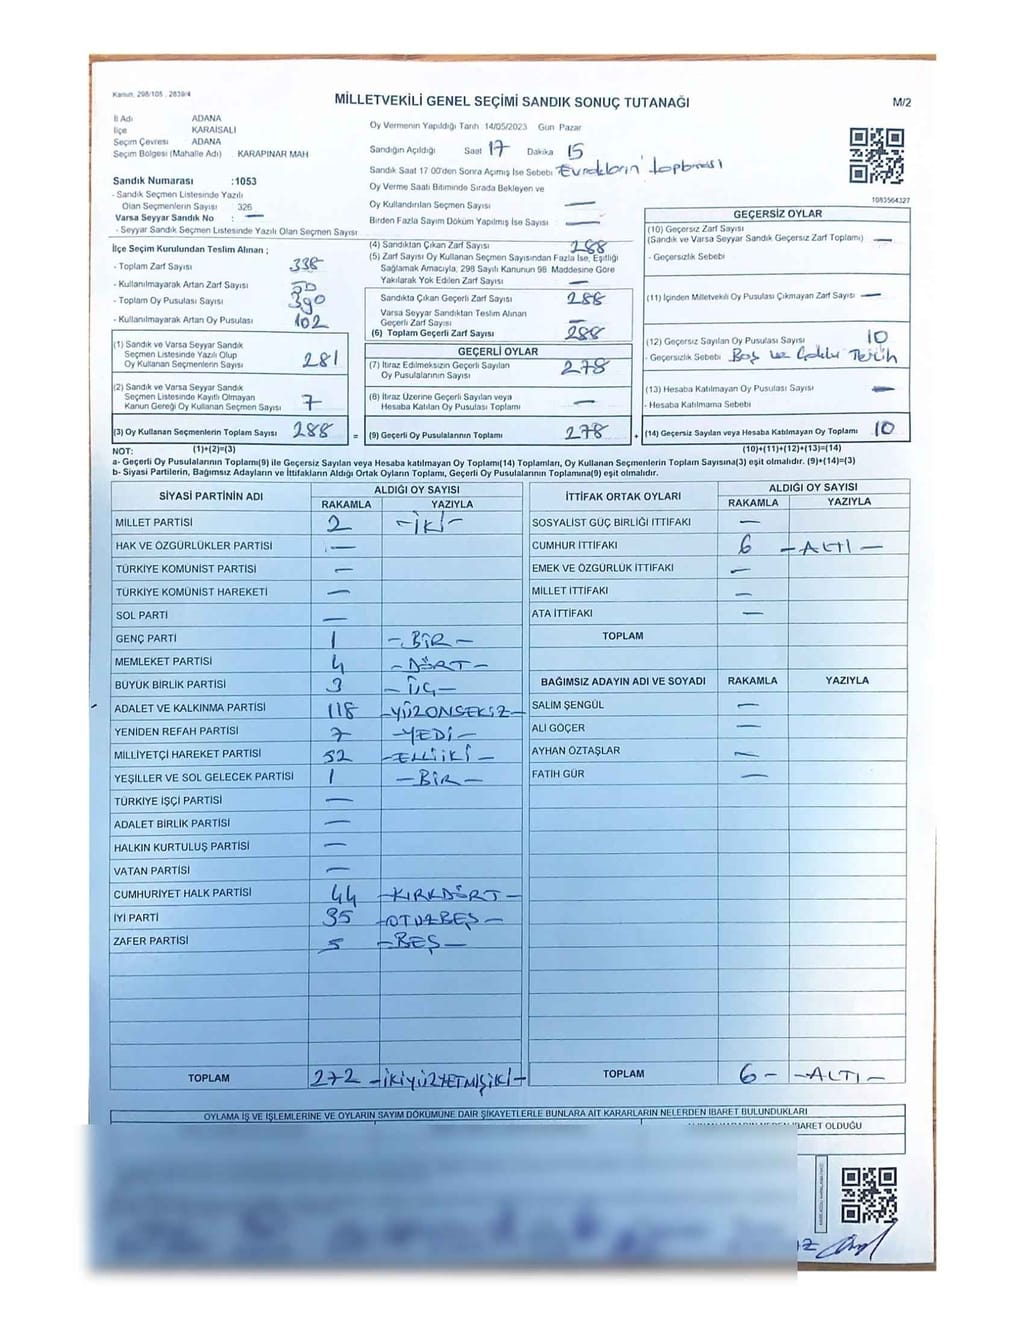 Kanun, 298/105 , 2839/4
MİLLETVEKİLİ GENEL SEÇİMİ SANDIK SONUÇ TUTANAĞI
M/2
İl Adı ADANA
İlçe KARAİSALI
Seçim Çevresi ADANA
Seçim Bölgesi (Mahalle Adı) KARAPINAR MAH
Sandık Numarası :1053
- Sandık Seçmen Listesinde Yazılı
Olan Seçmenlerin Sayısı 326
Varsa Seyyar Sandık No : —
- Seyyar Sandık Seçmen Listesinde Yazılı Olan Seçmen Sayısı
Oy Vermenin Yapıldığı Tarih 14/05/2023 Gün Pazar
Sandığın Açıldığı Saat 17 Dakika 15
Sandık Saat 17 00'den Sonra Açımış İse Sebebi Evrakların toplanması
Oy Verme Saati Bitiminde Sırada Bekleyen ve
Oy Kullandırılan Seçmen Sayısı —
Birden Fazla Sayım Döküm Yapılmış İse Sayısı —
1083564327
İlçe Seçim Kurulundan Teslim Alınan ;
- Toplam Zarf Sayısı 338
- Kullanılmayarak Artan Zarf Sayısı 50
- Toplam Oy Pusulası Sayısı 390
- Kullanılmayarak Artan Oy Pusulası 102
(1) Sandık ve Varsa Seyyar Sandık
Seçmen Listesinde Yazılı Olup
Oy Kullanan Seçmenlerin Sayısı 281
(2) Sandık ve Varsa Seyyar Sandık
Seçmen Listesinde Kayıtlı Olmayan
Kanun Gereği Oy Kullanan Seçmen Sayısı 7
(3) Oy Kullanan Seçmenlerin Toplam Sayısı 288 =
(4) Sandıktan Çıkan Zarf Sayısı 288
(5) Zarf Sayısı Oy Kullanan Seçmen Sayısından Fazla İse, Eşitliği
Sağlamak Amacıyla, 298 Sayılı Kanunun 98 Maddesine Göre
Yakılarak Yok Edilen Zarf Sayısı —
Sandıkta Çıkan Geçerli Zarf Sayısı 288
Varsa Seyyar Sandıktan Teslim Alınan
Geçerli Zarf Sayısı —
(6) Toplam Geçerli Zarf Sayısı 288
GEÇERLİ OYLAR
(7) İtiraz Edilmeksizin Geçerli Sayılan
Oy Pusulalarının Sayısı 278
(8) İtiraz Üzerine Geçerli Sayılan veya
Hesaba Katılan Oy Pusulası Toplamı —
(9) Geçerli Oy Pusulalarının Toplamı 278 +
GEÇERSİZ OYLAR
(10) Geçersiz Zarf Sayısı
(Sandık ve Varsa Seyyar Sandık Geçersiz Zarf Toplamı) —
- Geçersizlik Sebebi
(11) İçinden Milletvekili Oy Pusulası Çıkmayan Zarf Sayısı —
(12) Geçersiz Sayılan Oy Pusulası Sayısı 10
- Geçersizlik Sebebi Boş ve Çoklu Tercih
(13) Hesaba Katılmayan Oy Pusulası Sayısı —
- Hesaba Katılmama Sebebi
(14) Geçersiz Sayılan veya Hesaba Katılmayan Oy Toplamı 10
NOT: (1)+(2)=(3) (10)+(11)+(12)+(13)=(14)
a- Geçerli Oy Pusulalarının Toplamı(9) ile Geçersiz Sayılan veya Hesaba katılmayan Oy Toplamı(14) Toplamları, Oy Kullanan Seçmenlerin Toplam Sayısına(3) eşit olmalıdır. (9)+(14)=(3)
b- Siyasi Partilerin, Bağımsız Adayların ve İttifakların Aldığı Ortak Oyların Toplamı, Geçerli Oy Pusulalarının Toplamına(9) eşit olmalıdır.
SİYASİ PARTİNİN ADI ALDIĞI OY SAYISI
RAKAMLA YAZIYLA
MİLLET PARTİSİ 2 -İKİ-
HAK VE ÖZGÜRLÜKLER PARTİSİ —
TÜRKİYE KOMÜNİST PARTİSİ —
TÜRKİYE KOMÜNİST HAREKETİ —
SOL PARTİ —
GENÇ PARTİ 1 -BİR-
MEMLEKET PARTİSİ 4 -DÖRT-
BÜYÜK BİRLİK PARTİSİ 3 -ÜÇ-
ADALET VE KALKINMA PARTİSİ 118 -YÜZONSEKİZ-
YENİDEN REFAH PARTİSİ 7 -YEDİ-
MİLLİYETÇİ HAREKET PARTİSİ 52 -ELLİİKİ-
YEŞİLLER VE SOL GELECEK PARTİSİ 1 -BİR-
TÜRKİYE İŞÇİ PARTİSİ —
ADALET BİRLİK PARTİSİ —
HALKIN KURTULUŞ PARTİSİ —
VATAN PARTİSİ —
CUMHURİYET HALK PARTİSİ 44 -KIRKDÖRT-
İYİ PARTİ 35 -OTUZBEŞ-
ZAFER PARTİSİ 5 -BEŞ-
TOPLAM 272 -İKİYÜZYETMİŞİKİ-
İTTİFAK ORTAK OYLARI ALDIĞI OY SAYISI
RAKAMLA YAZIYLA
SOSYALİST GÜÇ BİRLİĞİ İTTİFAKI —
CUMHUR İTTİFAKI 6 -ALTI-
EMEK VE ÖZGÜRLÜK İTTİFAKI —
MİLLET İTTİFAKI —
ATA İTTİFAKI —
TOPLAM
BAĞIMSIZ ADAYIN ADI VE SOYADI RAKAMLA YAZIYLA
SALİM ŞENGÜL —
ALİ GÖÇER —
AYHAN ÖZTAŞLAR —
FATİH GÜR —
TOPLAM 6- -ALTI-
OYLAMA İŞ VE İŞLEMLERİNE VE OYLARIN SAYIM DÖKÜMÜNE DAİR ŞİKAYETLERLE BUNLARA AİT KARARLARIN NELERDEN İBARET BULUNDUKLARI
İBARET OLDUĞU